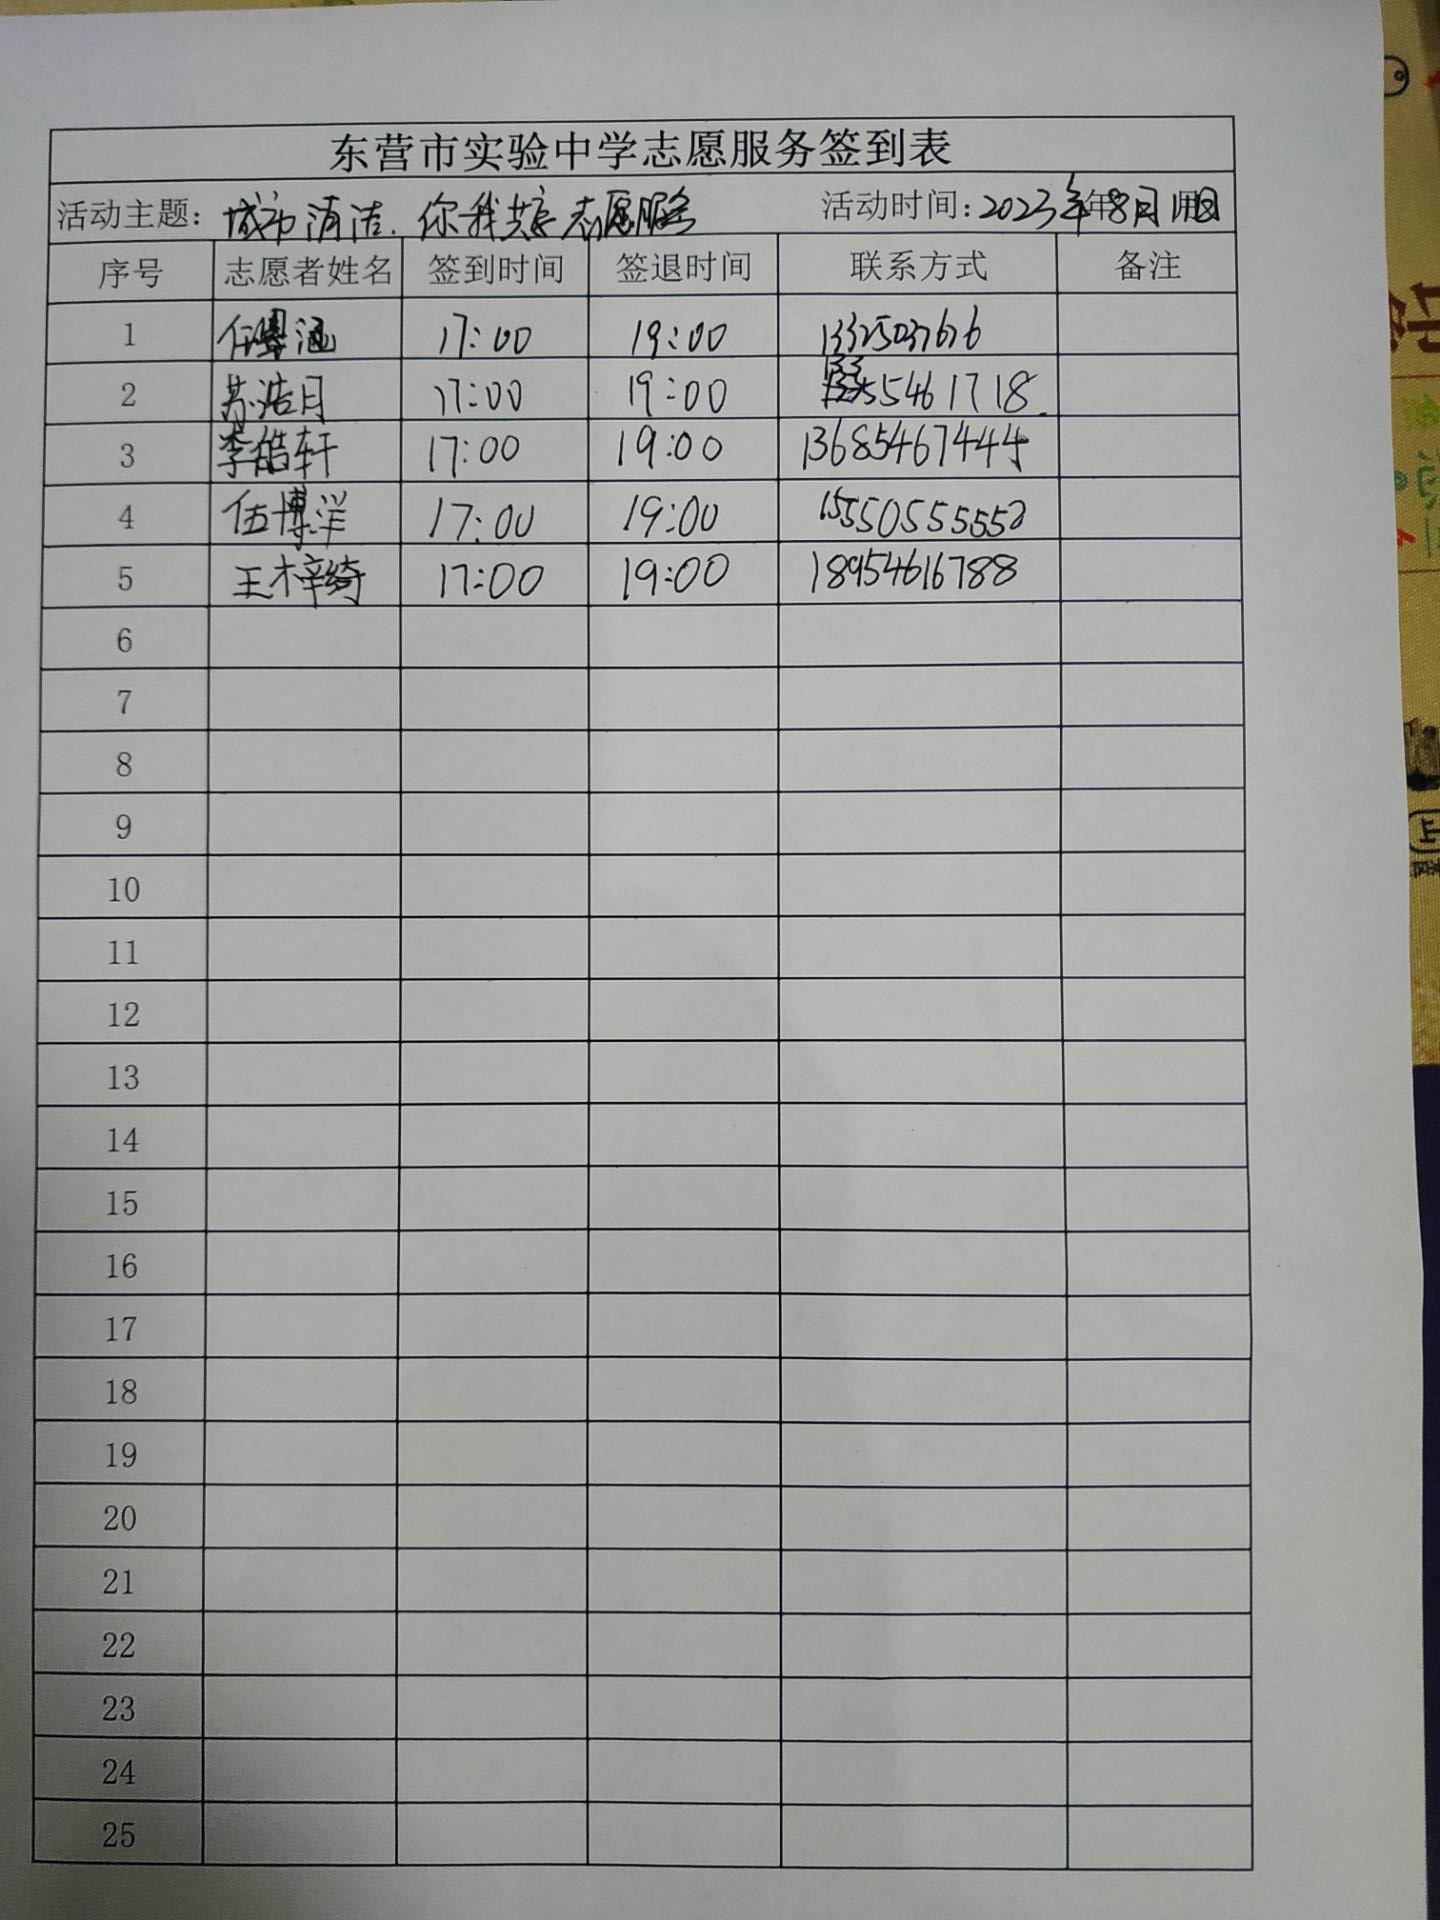 东营市实验中学志愿服务签到表
活动主题: 城市清洁.你我共享志愿服务 活动时间: 2023年年8月1日
序号 志愿者姓名 签到时间 签退时间 联系方式 备注
1 任 涵 17:00 19:00
2 苏浩月 17:00 19:00 5461718
3 李皓轩 17:00 19:00 13685467444
4 伍博洋 17:00 19:00 15550555552
5 王梓绮 17:00 19:00 18954616788
6
7
8
9
10
11
12
13
14
15
16
17
18
19
20
21
22
23
24
25